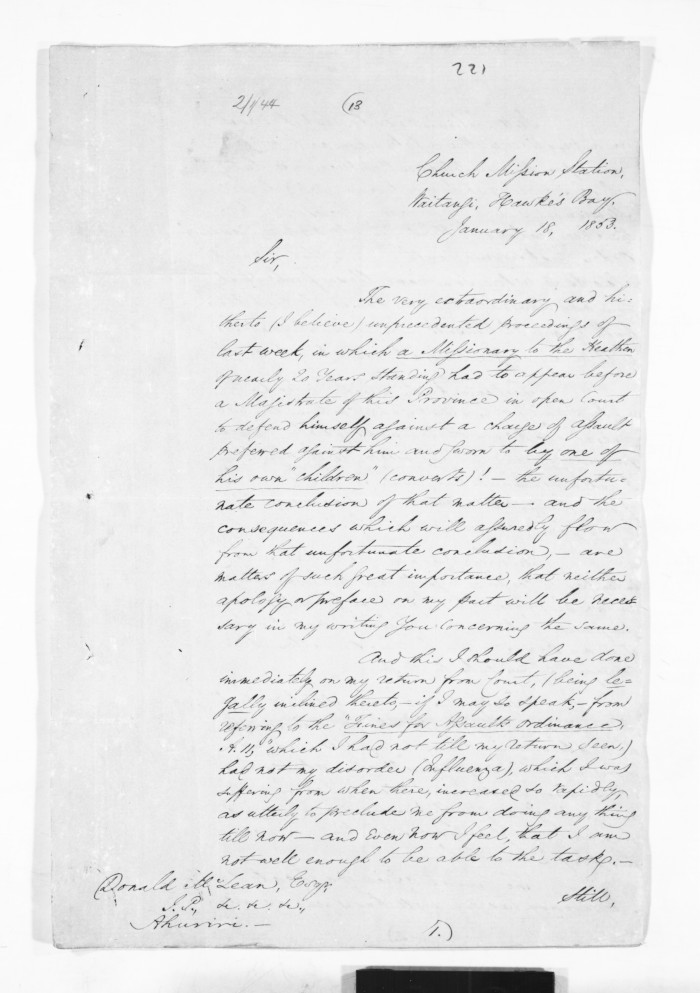 221
(13
Church Mission Station,
Waitangi, Hawke's Bay,
January 18, 1853.
Sir,
The very extraordinary and hi=
therto (I believe) unprecedented proceedings of
last week, in which a Missionary to the Heathen
of nearly 20 Years standing had to appear before
a Magistrate of this Province in open Court
to defend himself against a charge of assault
preferred against him and sworn to by one of
his own "children" (converts)! — the unfortu=
nate conclusion of that matter — and the
consequences which will assuredly flow
from that unfortunate conclusion, — are
matters of such great importance, that neither
apology or preface on my part will be neces=
sary in my writing You concerning the same.
And this I should have done
immediately on my return from Court, (being le=
gally inclined thereto, — if I may so speak, — from
referring to the "Fines for Assaults Ordinance,
which I had not till my return seen,)
had not my disorder (Influenza), which I was
suffering from when there, increased so rapidly,
as utterly to preclude me from doing any thing
till now — and even now I feel, that I am
not well enough to be able to the task. —
Donald McLean, Esqr,
Still,
J.P., &c. &c. &c.,
Ahuriri. —
1.)